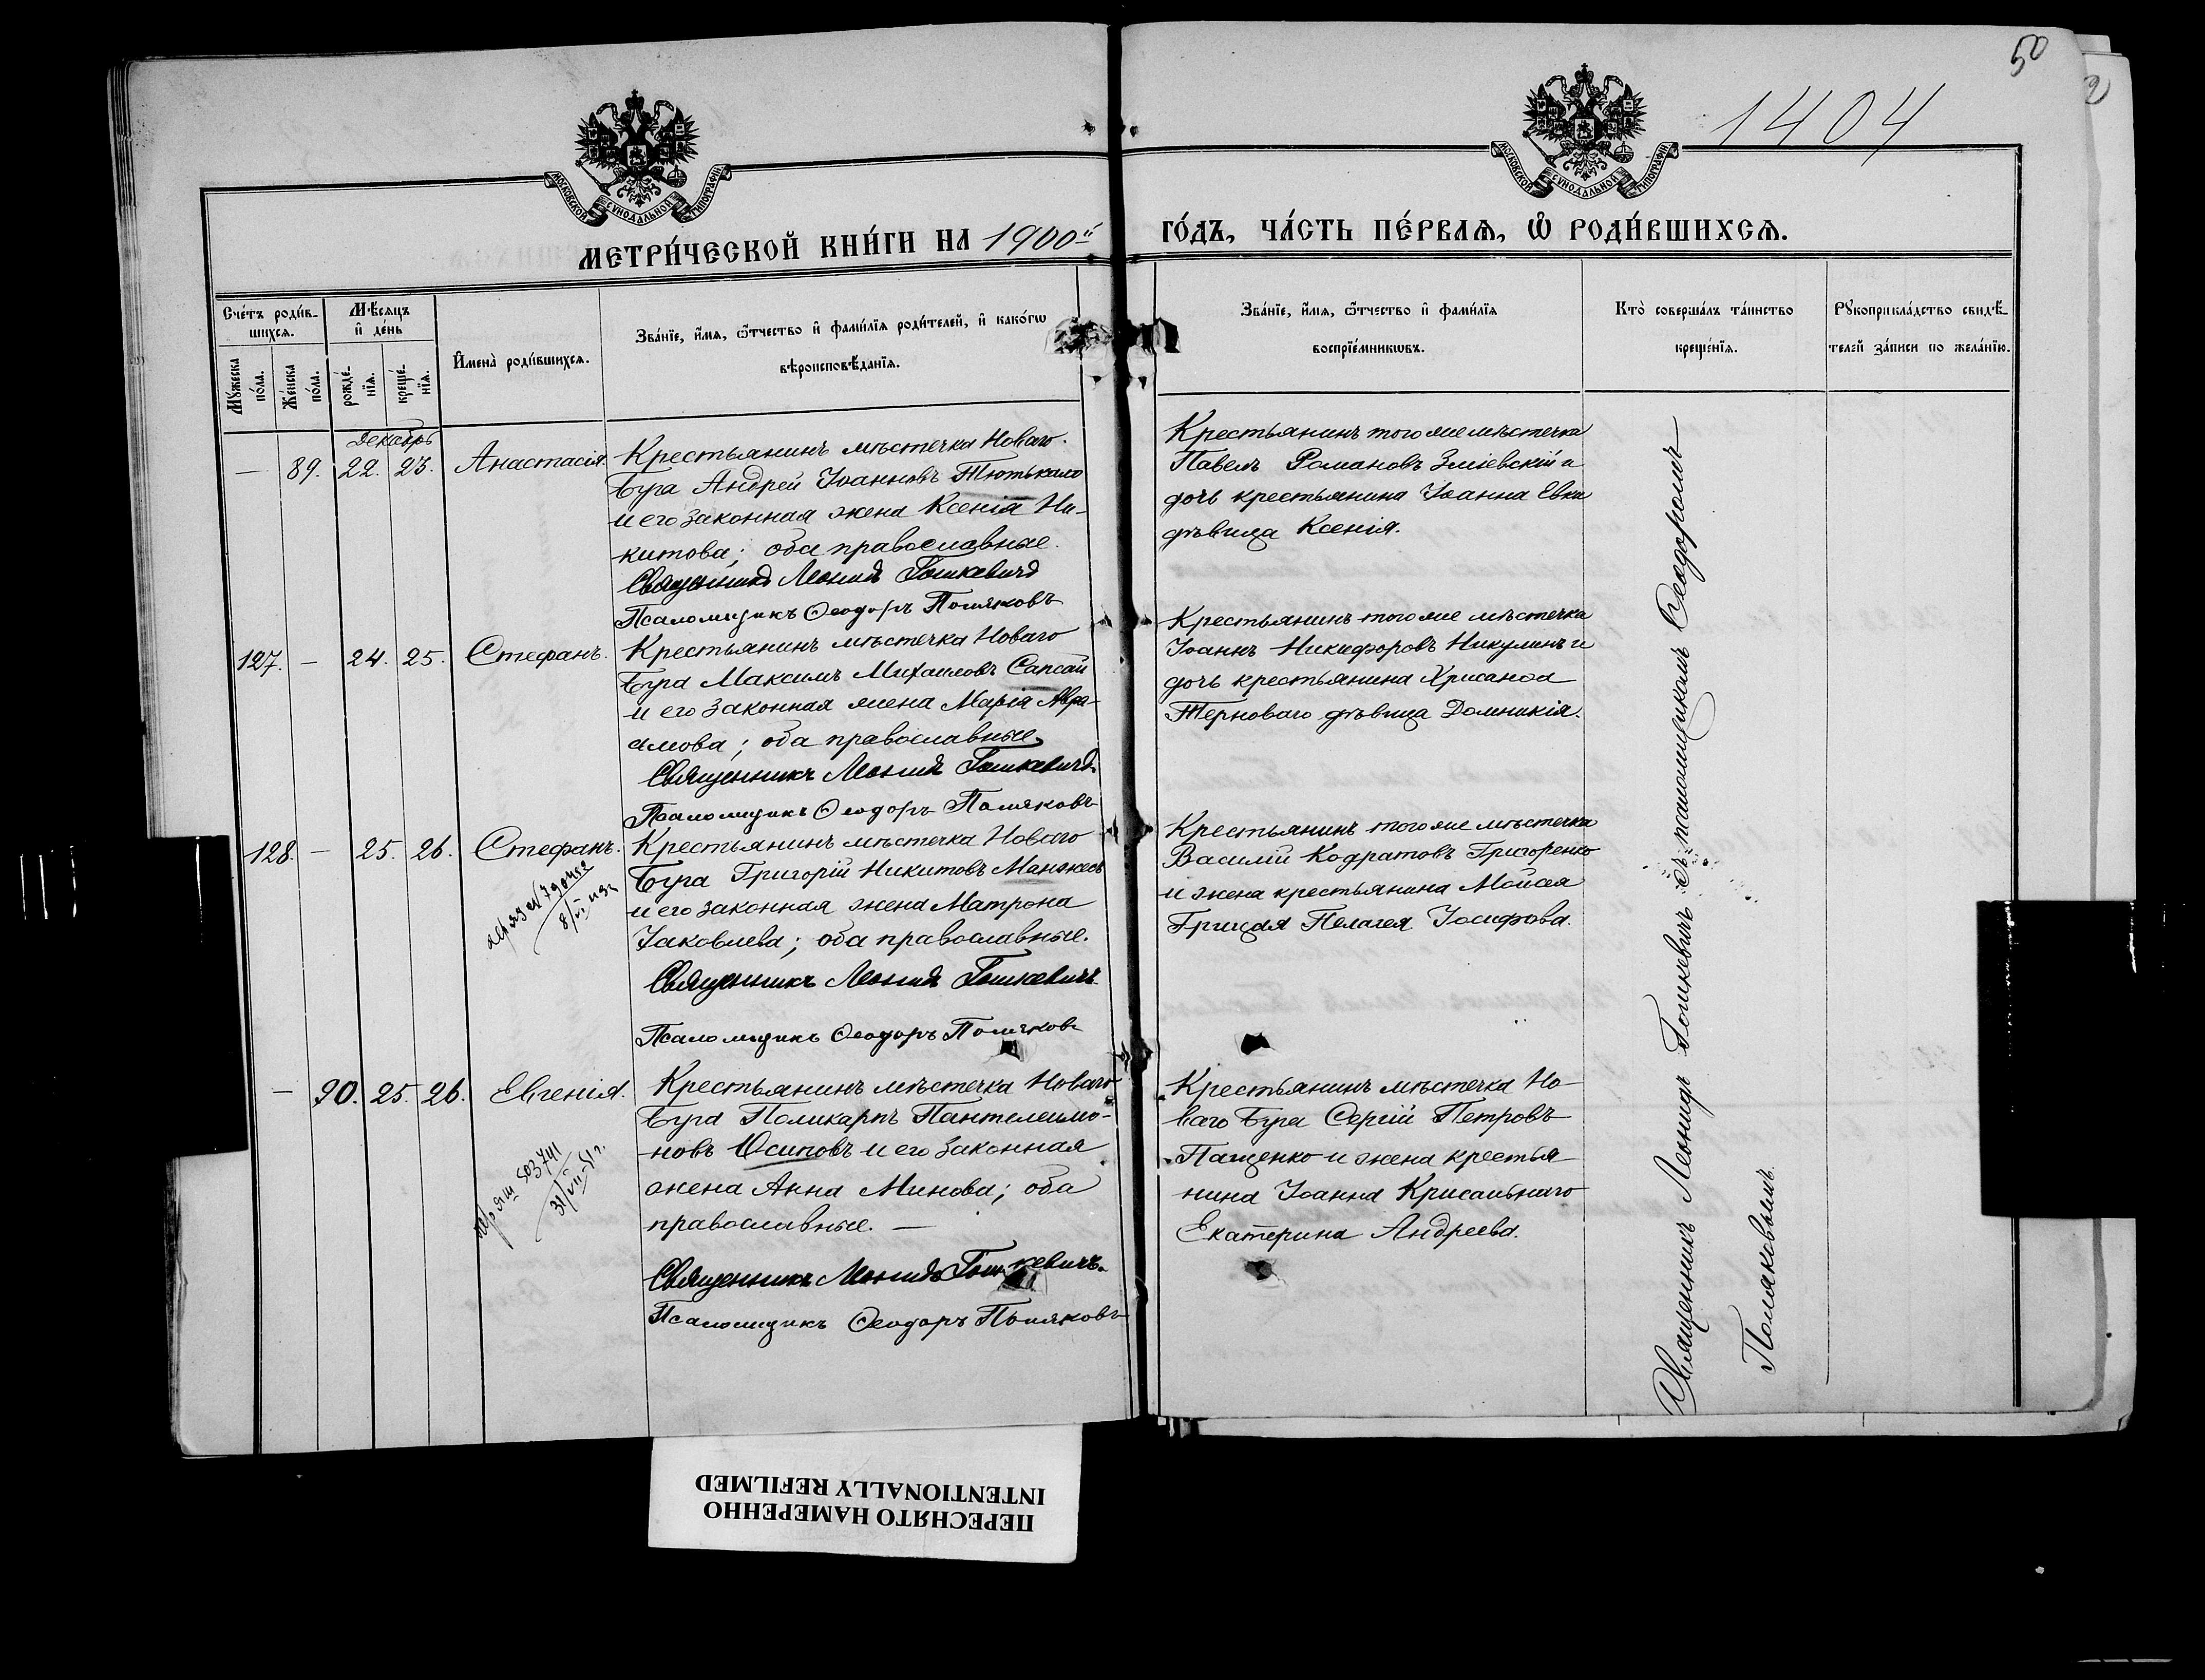 50
1404
МОСКОВСКОЙ СѴНОДАЛЬНОЙ ТИПОГРАФІИ
МОСКОВСКОЙ СѴНОДАЛЬНОЙ ТИПОГРАФІИ
МЕТРИ́ЧЕСКОЙ КНИ́ГИ НА 1900й
ГО́ДЪ, ЧА́СТЬ ПЕ́РВАѦ, Ѡ҆ РОДИ́ВШИХСѦ.
Сче́тъ роди́в-
шихсѧ.
Мꙋ́жеска
по́ла.
Же́нска
по́ла.
Мѣ́сѧцъ
и҆ де́нь
рожде́-
нїѧ.
креще́-
нїѧ.
И҆мена̀ роди́вшихсѧ.
Зва́нїе, и҆́мѧ, ѻ҆́тчество и҆ фами́лїѧ роди́телей, и҆ како́гѡ
вѣроисповѣ́данїѧ.
Зва́нїе, и҆́мѧ, ѻ҆́тчество и҆ фами́лїѧ
воспрїе́мникѡвъ.
Кто̀ соверша́лъ та́инство
креще́нїѧ.
Рꙋкоприкла́дство свидѣ́-
телей за́писи по жела́нїю.
Декабрь
— 89. 22. 23. Анастасія.
Крестьянинъ мѣстечка Новаго
Буга Андрей Іоанновъ Тютькало
и его законная жена Ксенія Ни-
китова; оба православные.
Священникъ Леонидъ Гошкевичъ
Псаломщикъ Ѳеодоръ Поляковъ
Крестьянинъ того же мѣстечка
Павелъ Романовъ Зміевскій и
дочь крестьянина Іоанна Евка
дѣвица Ксенія.
127. — 24. 25. Стефанъ.
Крестьянинъ мѣстечка Новаго
Буга Максимъ Михаиловъ Сапсай
и его законная жена Марія Авра-
амова; оба православные.
Священникъ Леонидъ Гошкевичъ
Псаломщикъ Ѳеодоръ Поляковъ
Крестьянинъ того же мѣстечка
Іоаннъ Никифоровъ Никулинъ и
дочь крестьянина Хрисанѳа
Терноваго дѣвица Домникія.
128. — 25. 26. Стефанъ.
Крестьянинъ мѣстечка Новаго
Буга Григорій Никитовъ Манжосъ
и его законная жена Матрона
Іаковлева; оба православные.
Священникъ Леонидъ Гошкевичъ
Псаломщикъ Ѳеодоръ Поляковъ
Крестьянинъ того же мѣстечка
Василій Кодратовъ Григоренко
и жена крестьянина Моисея
Грицая Пелагея Іосифова.
— 90. 25. 26. Евгенія.
503741
31/VII-51 г.
Крестьянинъ мѣстечка Новаго
Буга Поликарпъ Пантелеимо-
новъ Осиповъ и его законная
жена Анна Минова; оба
православные. —
Священникъ Леонидъ Гошкевичъ
Псаломщикъ Ѳеодоръ Поляковъ
Крестьянинъ мѣстечка Но-
ваго Буга Сергій Петровъ
Пащенко и жена крестья-
нина Іоанна
Екатерина Андреева.
Священникъ Леонидъ Гошкевичъ съ псаломщикомъ Ѳеодоромъ
Поляковымъ.
ПЕРЕСНЯТО НАМЕРЕННО
INTENTIONALLY REFILMED